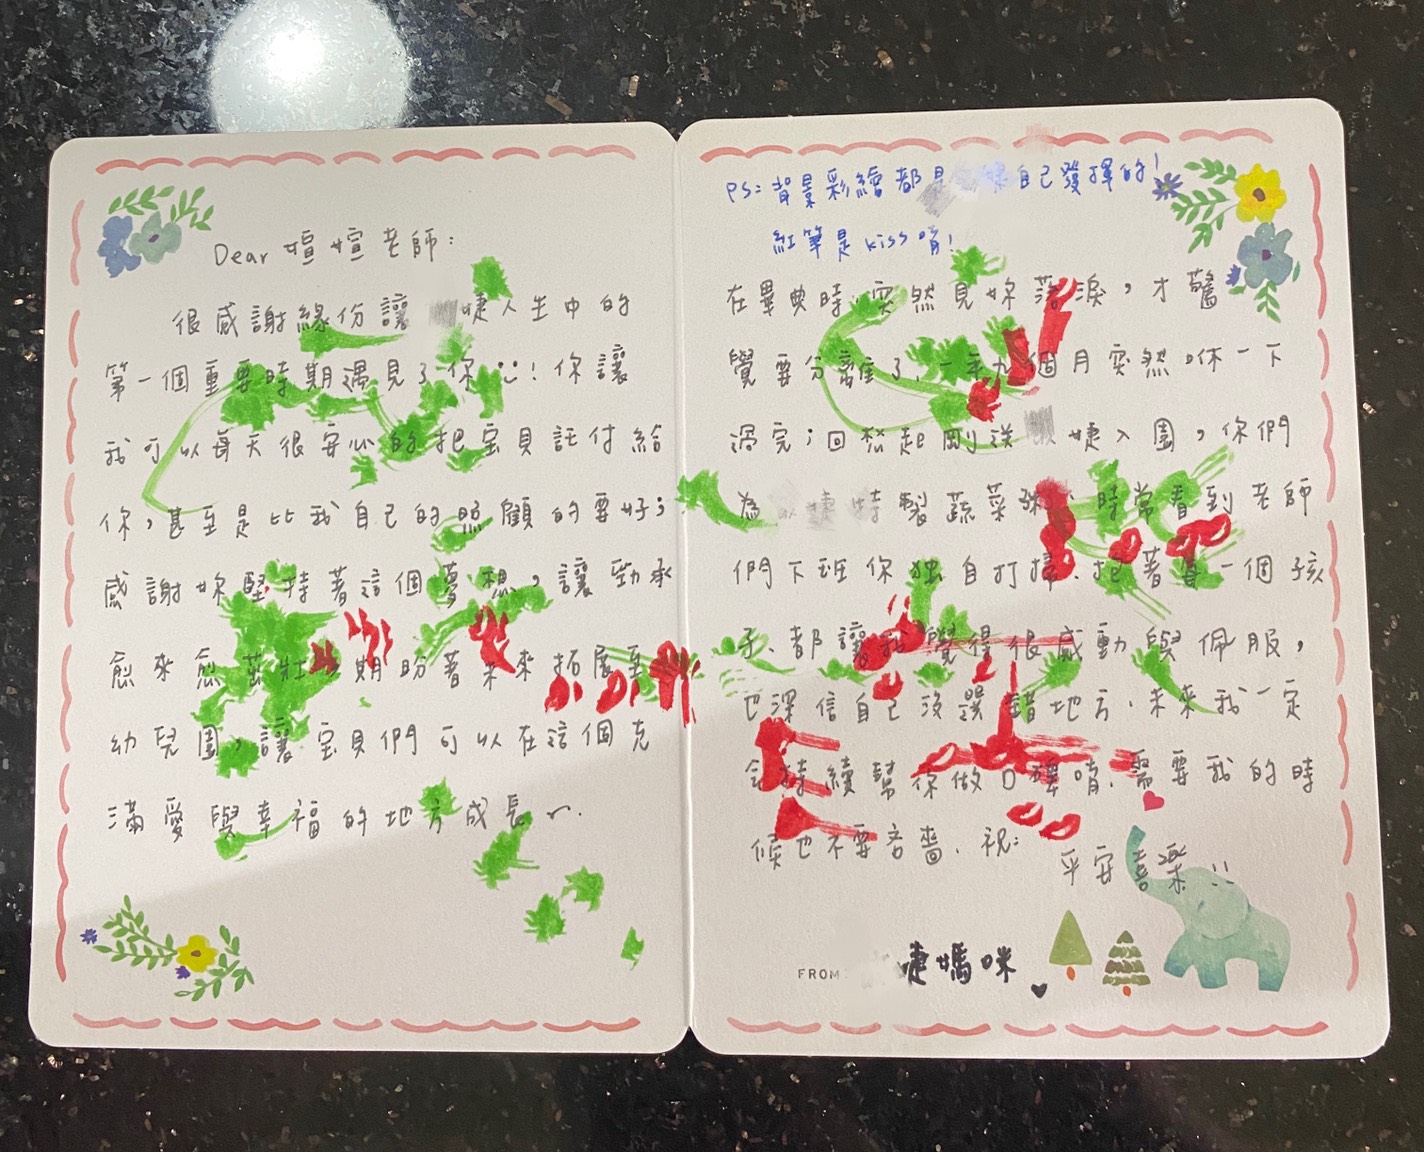 Dear 媗媗老師：
很感謝緣份讓 婕人生中的
第一個重要時期遇見了你！你讓
我可以每天很安心的把宝貝託付給
你，甚至是比我自己的照顧的要好；
感謝妳堅持著這個夢想，讓勁承
愈來愈茁壯、期盼著未來拓展至
幼兒園，讓宝貝們可以在這個充
滿愛與幸福的地方成長～.
PS：背景彩繪都是 自己發揮的！
紅筆是 kiss 唷！
在畢典時，突然見妳落淚，才驚
覺要分離了、一年九個月突然咻一下
過完；回想起剛送 婕入園，你們
為 婕特製蔬菜粥、時常看到老師
們下班你獨自打掃、抱著每一個孩
子、都讓我覺得很感動與佩服，
也深信自己沒選錯地方、未來我一定
會持續幫你做口碑唷、需要我的時
候也不要吝嗇、祝：
平安喜樂
FROM 婕媽咪